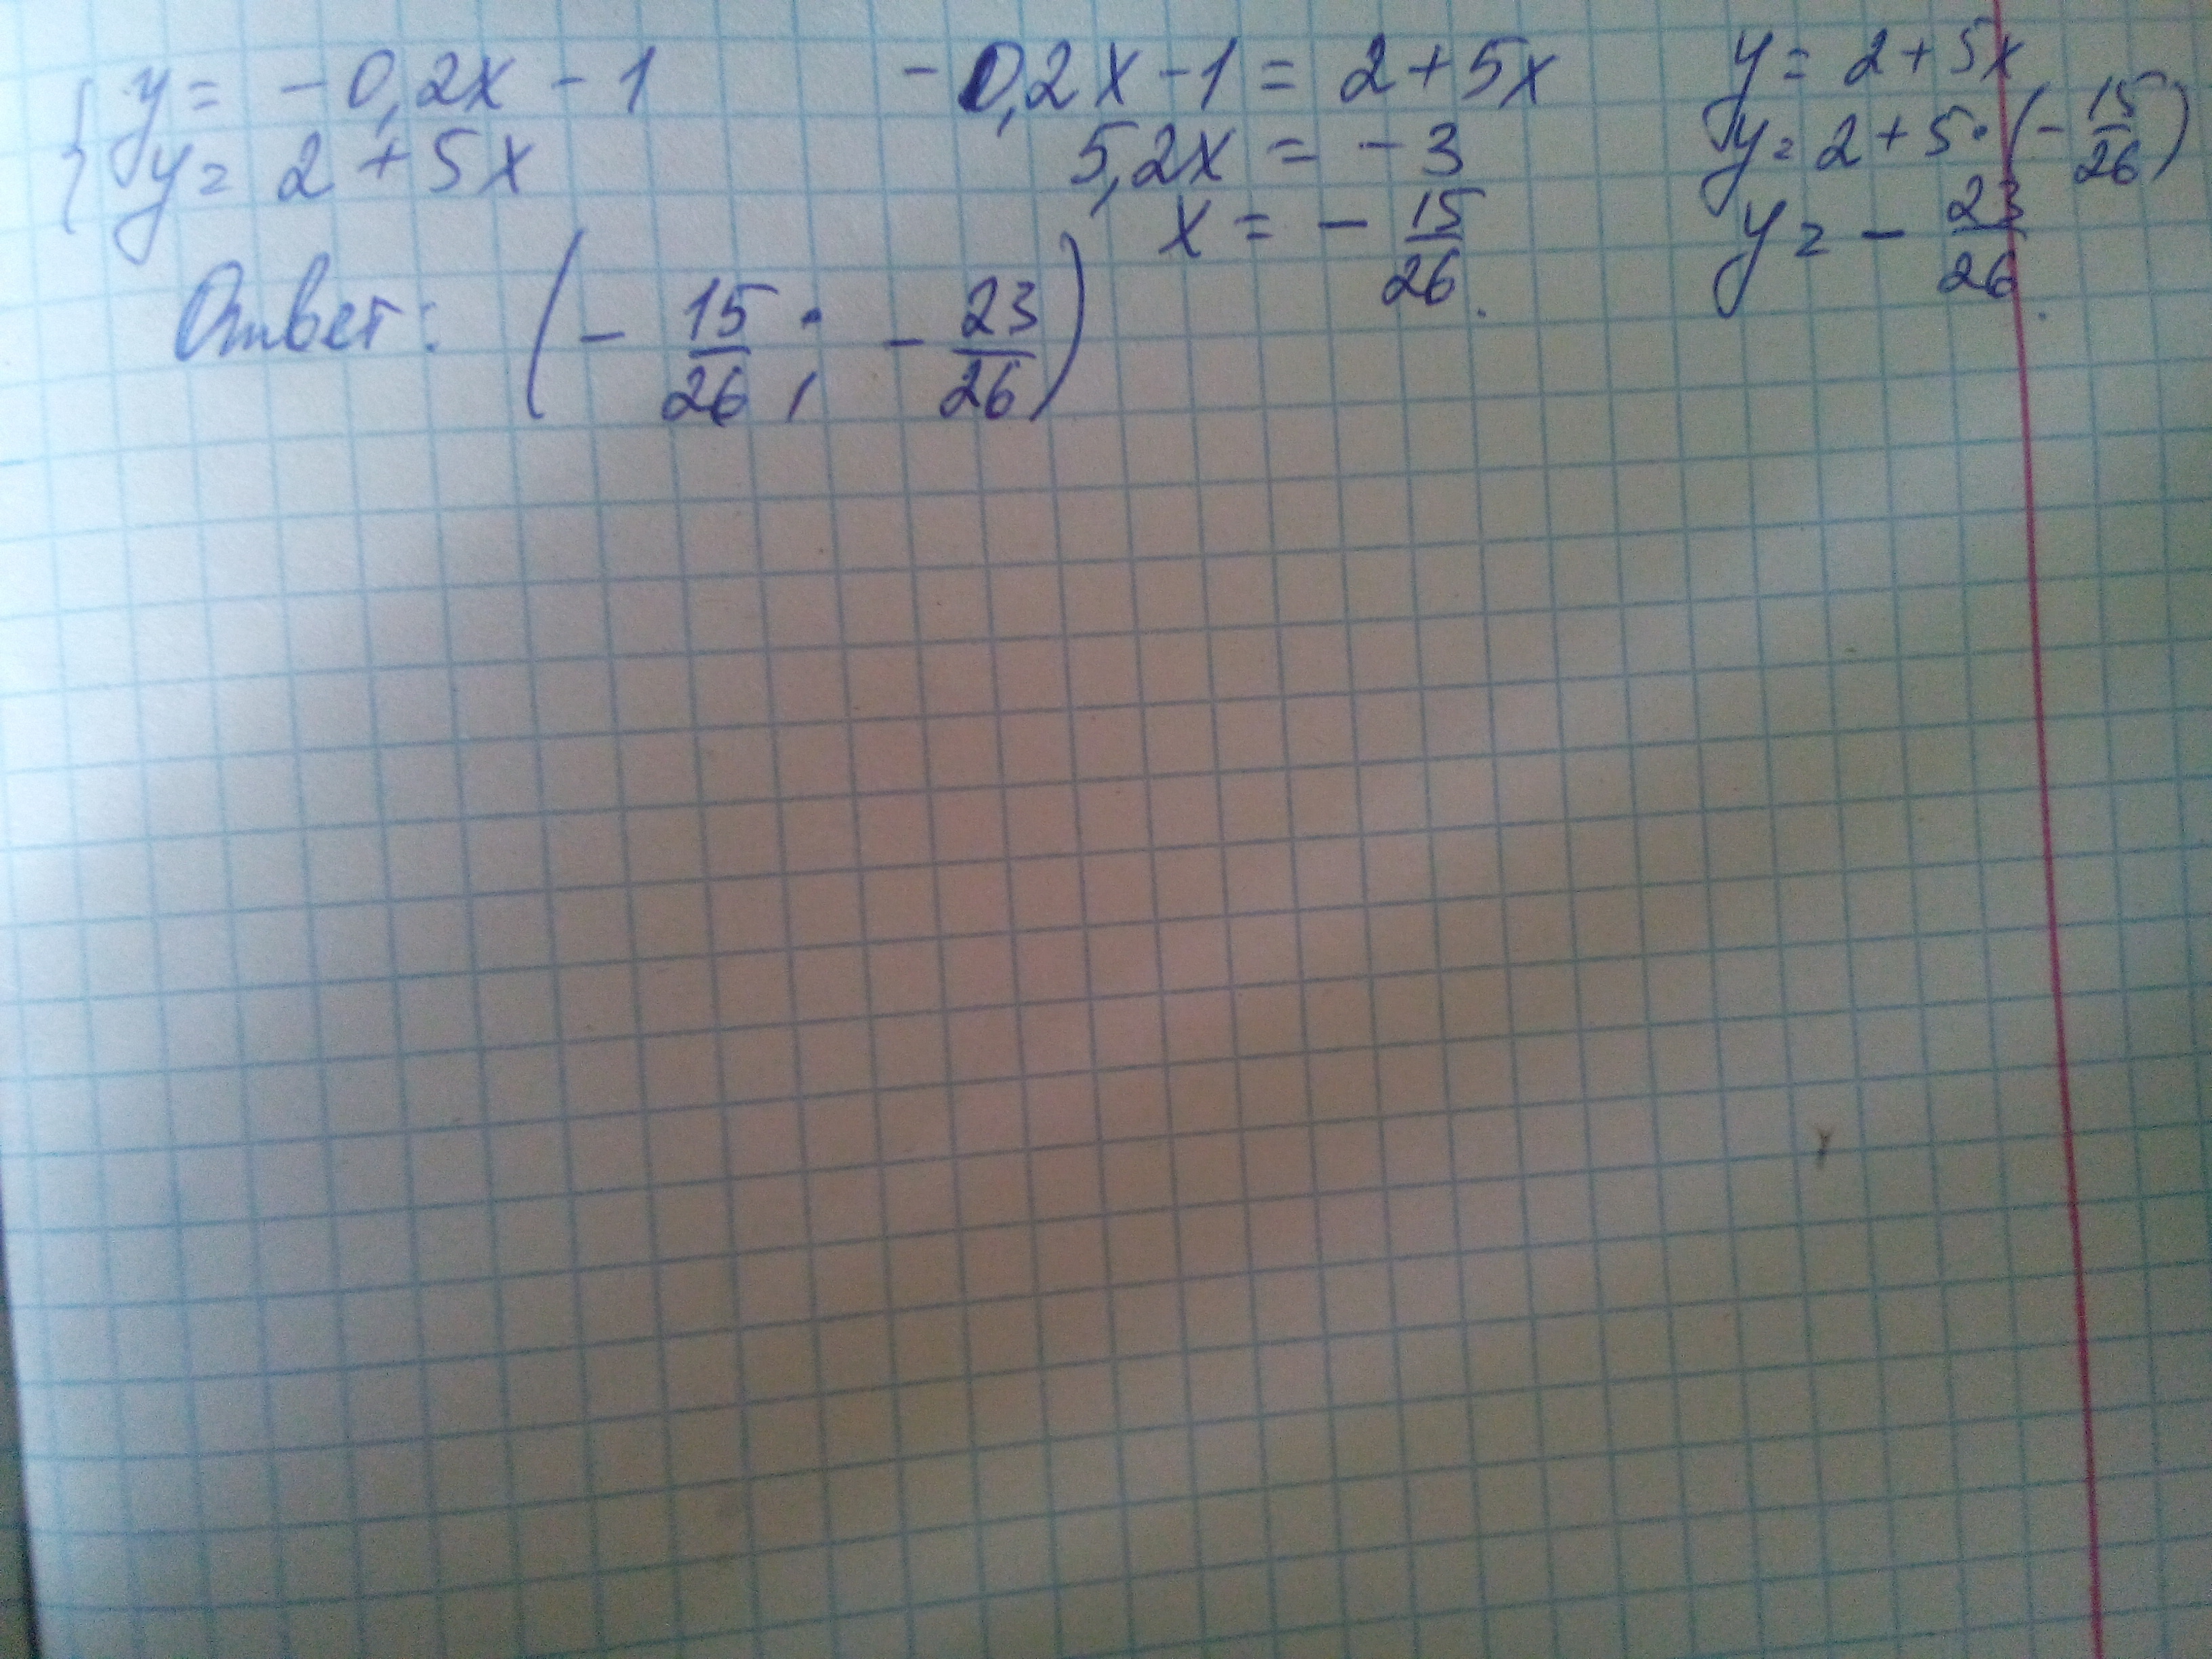 { y = - 0,2x - 1
y = 2 + 5x
- 0,2x - 1 = 2 + 5x
5,2x = - 3
x = - 15/26.
y = 2 + 5x
y = 2 + 5 · (- 15/26)
y = - 23/26.
Ответ: (- 15/26 ; - 23/26)